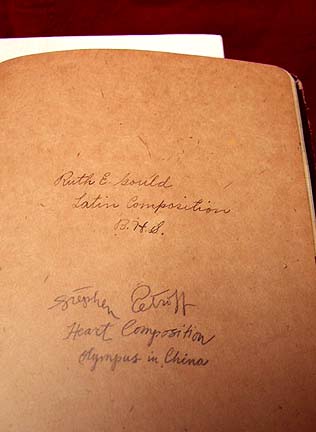 Ruth E. Gould
Latin Composition
B.H.S.
Stephen Petroff
Heart Composition
Olympus in China